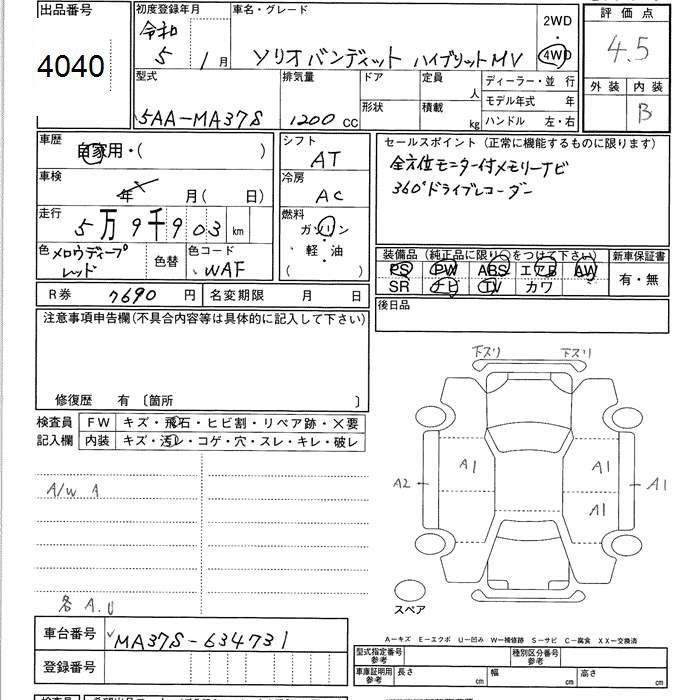 出品番号
4040
初度登録年月
令和
5 1月
車名・グレード
ソリオ バンディット ハイブリットMV
2WD
・
4WD
評価点
4.5
外装 内装
B
型式
5AA-MA37S
排気量
1200 CC
ドア
形状
定員
人
積載
kg
ディーラー・並 行
モデル年式 年
ハンドル 左・右
車歴
自家用・( )
車検
年 月( 日)
走行
5万9千903 km
色 メロウディープ
レッド
色替
色コード
WAF
シフト
AT
冷房
AC
燃料
ガソリン
軽・油
( )
セールスポイント(正常に機能するものに限ります)
全方位モニター付メモリーナビ
360°ドライブレコーダー
装備品(純正品に限り○をつけて下さい)
PS PW ABS エアB AW
SR ナビ TV カワ
新車保証書
有・無
R券 7690 円
名変期限 月 日
後日品
注意事項申告欄(不具合内容等は具体的に記入して下さい)
修復歴 有 〔箇所 〕
検査員
記入欄
FW キズ・飛石・ヒビ割・リペア跡・X要
内装 キズ・汚レ・コゲ・穴・スレ・キレ・破レ
A/W A
各 A.U
下スリ 下スリ
A1 A1
A2 A1
A1
スペア
車台番号
MA37S-634731
登録番号
A－キズ E－エクボ U－凹み W－補修跡 S－サビ C－腐食 XX－交換済
型式指定番号
参考
種別区分番号
参考
車庫証明用
参考
長さ cm 幅 cm 高さ cm